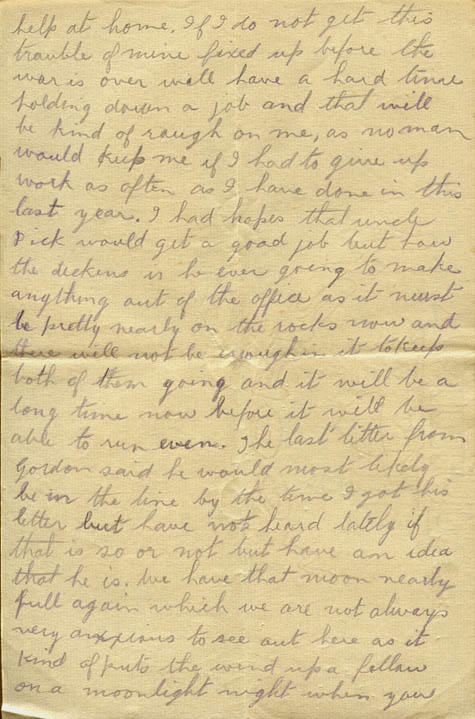 help at home. If I do not get this
trouble of mine fixed up before the
war is over will have a hard time
holding down a job and that will
be kind of rough on me, as no man
would keep me if I had to give up
work as often as I have done in this
last year. I had hopes that uncle
Dick would get a good job but how
the dickens is he ever going to make
anything out of the office as it must
be pretty nearly on the rocks now and
there will not be enough in it to keep
both of them going and it will be a
long time now before it will be
able to run even. The last letter from
Gordon said he would most likely
be in the line by the time I got his
letter but have not heard lately if
that is so or not but have an idea
that he is. We have that moon nearly
full again which we are not always
very anxxious to see out here as it
kind of puts the wind up a fellow
on a moonlight night when you